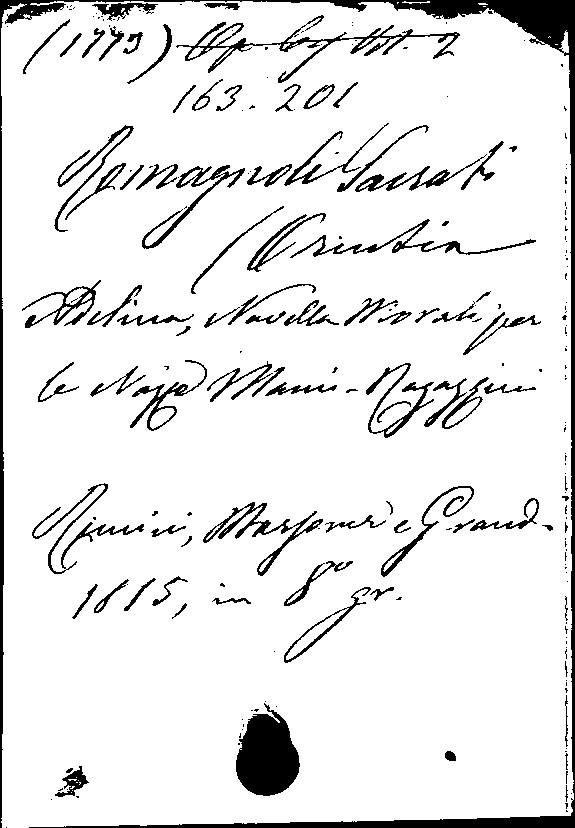 (1773) Op. Vol. 2
163. 201
Romagnoli Sacrati
(Orintia
Adelina, Novella Morale per
le Nozze Mani-Ragazzini
Rimini, Marsoner e Grand.
1815, in 8º gr.